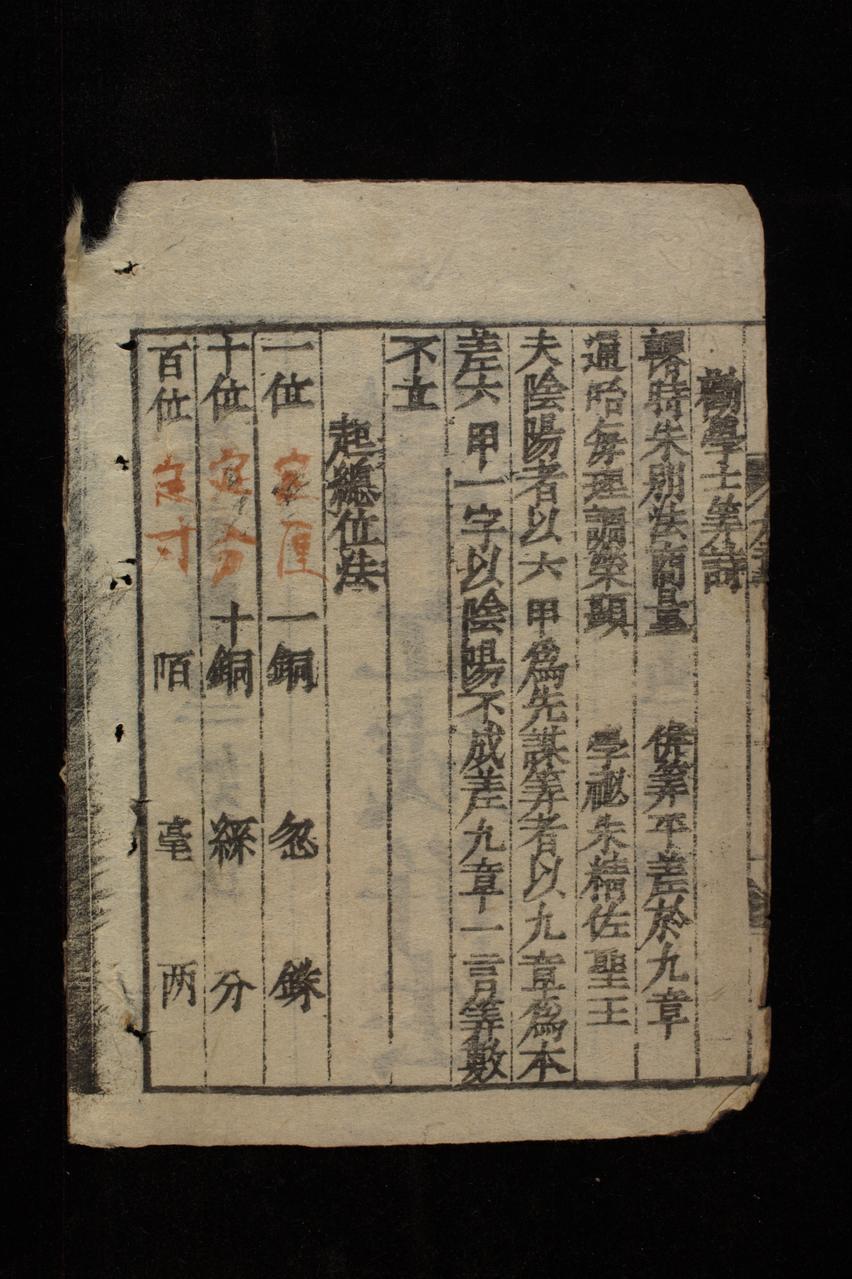 勸學士筭詩
時朱別法商量 俻筭平差於九章
通昭每理譋榮顯 學祕朱精佐聖王
夫陰陽者以六甲為先謀筭者以九章為本
差六甲一字以陰陽不成差九章一言筭數
不立
起總位法
一位 定厘 一銅 忽 銖
十位 定分 十銅 綵 分
百位 定寸 陌 毫 两